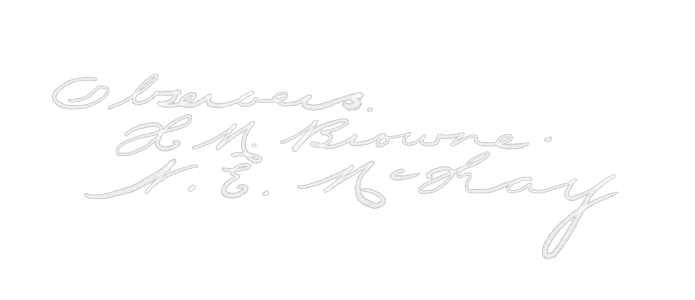 Observers.
H. M. Browne.
N. E. McKay